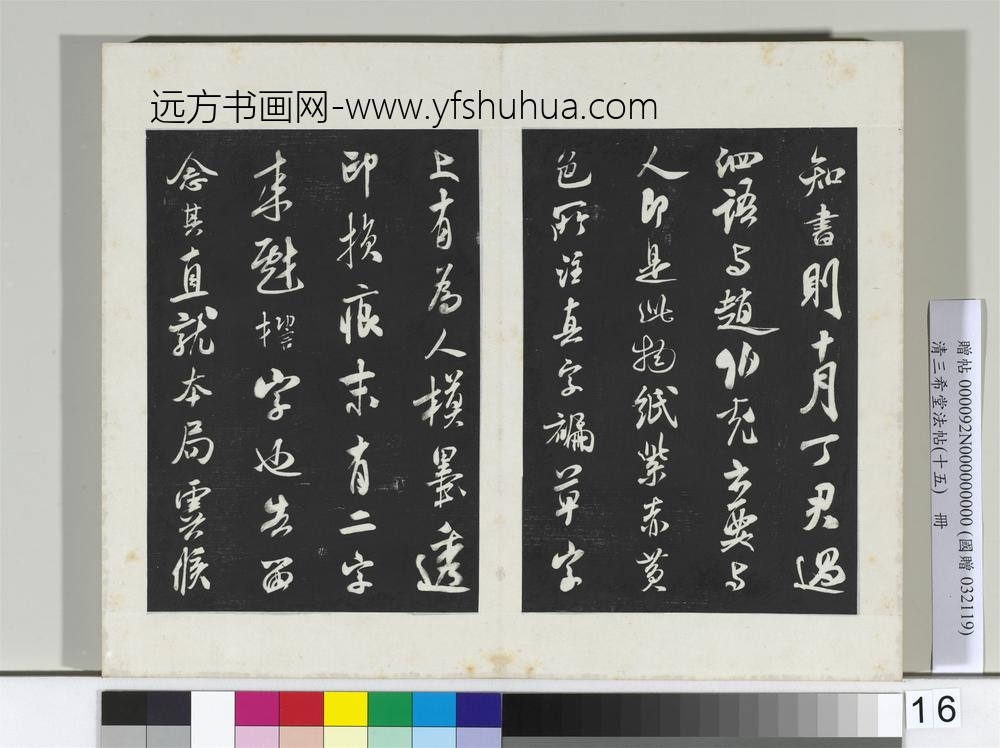 远方书画网-www.yfshuhua.com
知書則十月丁君過
泗語与趙伯充云要与
人即是此物紙紫赤黄
色所注真字褊草字
上有為人模墨透
印損痕末有二字
来戩摺字也告留
念其直就本局虞候
贈帖 000092N000000000 (國贈 032119)
清三希堂法帖(十五) 冊
16